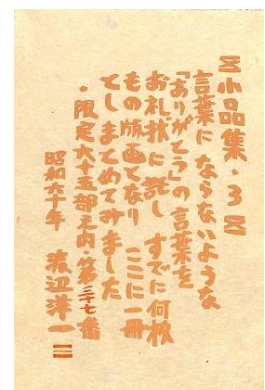 小品集・3
言葉にならないような
「ありがとう」の言葉を
お礼状に託し すでに何枚
もの版画となり ここに一冊
としまとめてみました
・限定六十五部之内・第三十七番
昭和六十年 渡辺洋一